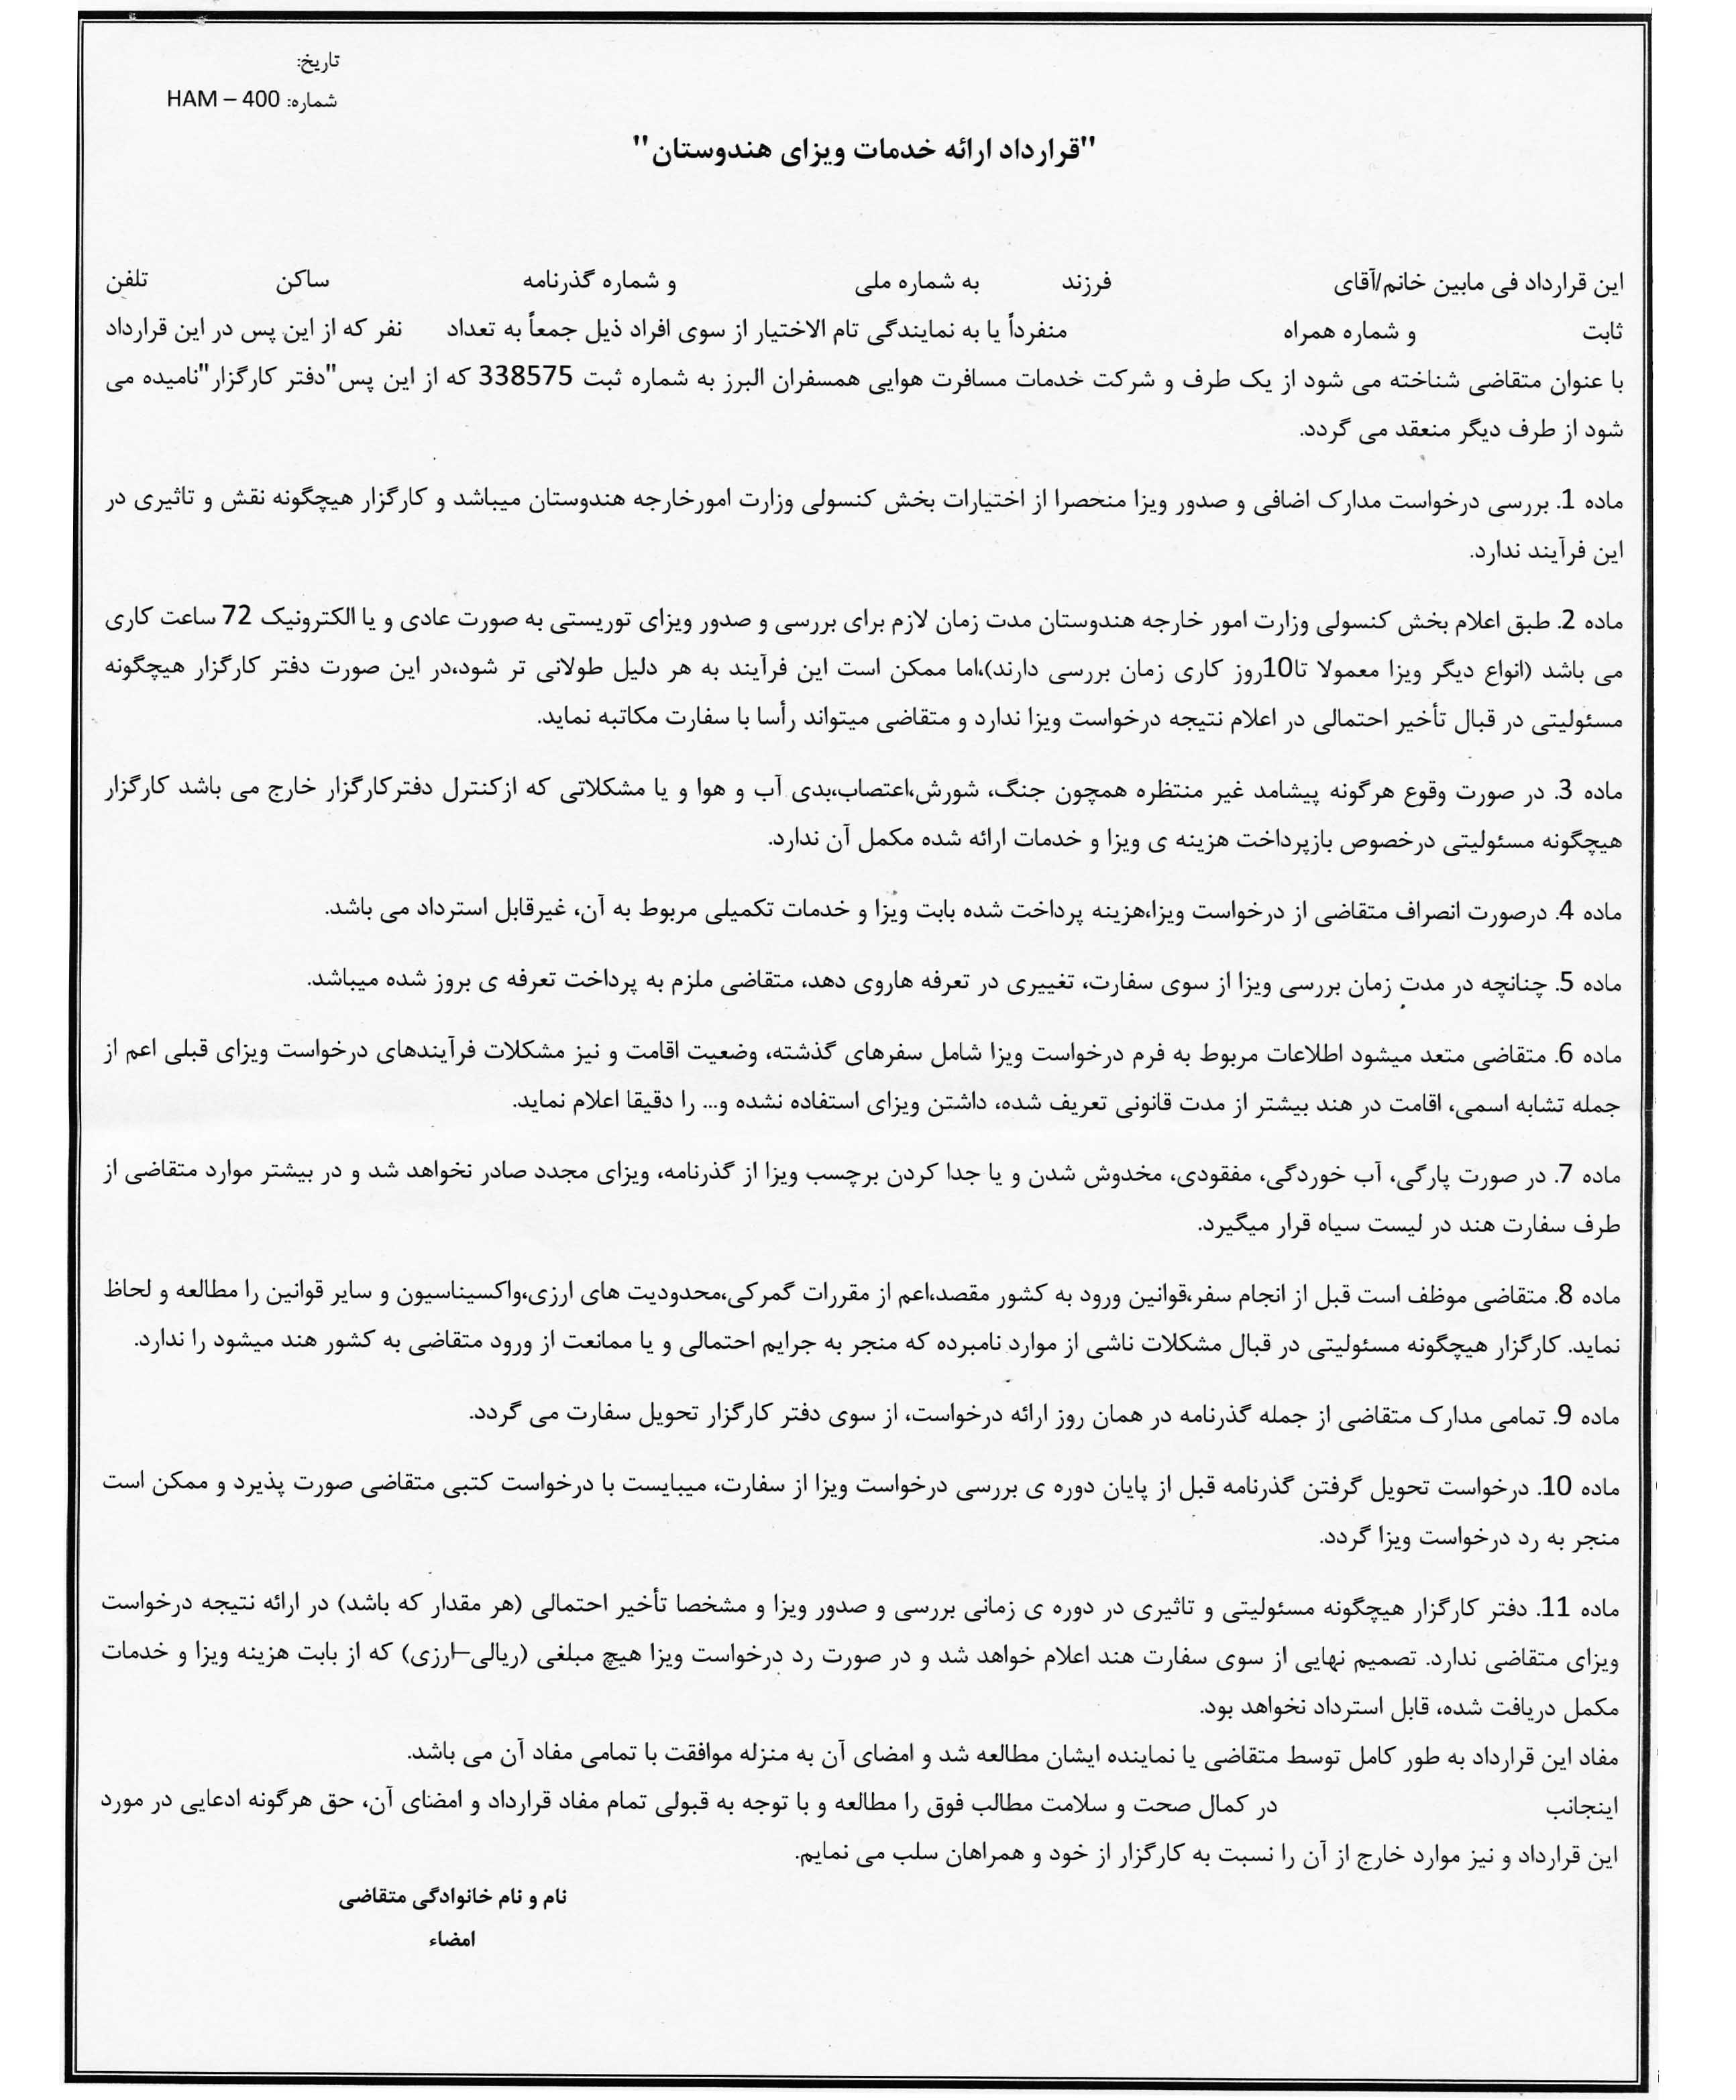 تاریخ:
شماره: HAM – 400
"قرارداد ارائه خدمات ویزای هندوستان"
این قرارداد فی مابین خانم/آقای فرزند به شماره ملی و شماره گذرنامه ساکن تلفن
ثابت و شماره همراه منفرداً یا به نمایندگی تام الاختیار از سوی افراد ذیل جمعاً به تعداد نفر که از این پس در این قرارداد
با عنوان متقاضی شناخته می شود از یک طرف و شرکت خدمات مسافرت هوایی همسفران البرز به شماره ثبت 338575 که از این پس"دفتر کارگزار"نامیده می
شود از طرف دیگر منعقد می گردد.
ماده 1. بررسی درخواست مدارک اضافی و صدور ویزا منحصرا از اختیارات بخش کنسولی وزارت امورخارجه هندوستان میباشد و کارگزار هیچگونه نقش و تاثیری در
این فرآیند ندارد.
ماده 2. طبق اعلام بخش کنسولی وزارت امور خارجه هندوستان مدت زمان لازم برای بررسی و صدور ویزای توریستی به صورت عادی و یا الکترونیک 72 ساعت کاری
می باشد (انواع دیگر ویزا معمولا تا10روز کاری زمان بررسی دارند)،اما ممکن است این فرآیند به هر دلیل طولانی تر شود،در این صورت دفتر کارگزار هیچگونه
مسئولیتی در قبال تأخیر احتمالی در اعلام نتیجه درخواست ویزا ندارد و متقاضی میتواند رأسا با سفارت مکاتبه نماید.
ماده 3. در صورت وقوع هرگونه پیشامد غیر منتظره همچون جنگ، شورش،اعتصاب،بدی آب و هوا و یا مشکلاتی که ازکنترل دفترکارگزار خارج می باشد کارگزار
هیچگونه مسئولیتی درخصوص بازپرداخت هزینه ی ویزا و خدمات ارائه شده مکمل آن ندارد.
ماده 4. درصورت انصراف متقاضی از درخواست ویزا،هزینه پرداخت شده بابت ویزا و خدمات تکمیلی مربوط به آن، غیرقابل استرداد می باشد.
ماده 5. چنانچه در مدت زمان بررسی ویزا از سوی سفارت، تغییری در تعرفه هاروی دهد، متقاضی ملزم به پرداخت تعرفه ی بروز شده میباشد.
ماده 6. متقاضی متعد میشود اطلاعات مربوط به فرم درخواست ویزا شامل سفرهای گذشته، وضعیت اقامت و نیز مشکلات فرآیندهای درخواست ویزای قبلی اعم از
جمله تشابه اسمی، اقامت در هند بیشتر از مدت قانونی تعریف شده، داشتن ویزای استفاده نشده و... را دقیقا اعلام نماید.
ماده 7. در صورت پارگی، آب خوردگی، مفقودی، مخدوش شدن و یا جدا کردن برچسب ویزا از گذرنامه، ویزای مجدد صادر نخواهد شد و در بیشتر موارد متقاضی از
طرف سفارت هند در لیست سیاه قرار میگیرد.
ماده 8. متقاضی موظف است قبل از انجام سفر،قوانین ورود به کشور مقصد،اعم از مقررات گمرکی،محدودیت های ارزی،واکسیناسیون و سایر قوانین را مطالعه و لحاظ
نماید. کارگزار هیچگونه مسئولیتی در قبال مشکلات ناشی از موارد نامبرده که منجر به جرایم احتمالی و یا ممانعت از ورود متقاضی به کشور هند میشود را ندارد.
ماده 9. تمامی مدارک متقاضی از جمله گذرنامه در همان روز ارائه درخواست، از سوی دفتر کارگزار تحویل سفارت می گردد.
ماده 10. درخواست تحویل گرفتن گذرنامه قبل از پایان دوره ی بررسی درخواست ویزا از سفارت، میبایست با درخواست کتبی متقاضی صورت پذیرد و ممکن است
منجر به رد درخواست ویزا گردد.
ماده 11. دفتر کارگزار هیچگونه مسئولیتی و تاثیری در دوره ی زمانی بررسی و صدور ویزا و مشخصا تأخیر احتمالی (هر مقدار که باشد) در ارائه نتیجه درخواست
ویزای متقاضی ندارد. تصمیم نهایی از سوی سفارت هند اعلام خواهد شد و در صورت رد درخواست ویزا هیچ مبلغی (ریالی–ارزی) که از بابت هزینه ویزا و خدمات
مکمل دریافت شده، قابل استرداد نخواهد بود.
مفاد این قرارداد به طور کامل توسط متقاضی یا نماینده ایشان مطالعه شد و امضای آن به منزله موافقت با تمامی مفاد آن می باشد.
اینجانب در کمال صحت و سلامت مطالب فوق را مطالعه و با توجه به قبولی تمام مفاد قرارداد و امضای آن، حق هرگونه ادعایی در مورد
این قرارداد و نیز موارد خارج از آن را نسبت به کارگزار از خود و همراهان سلب می نمایم.
نام و نام خانوادگی متقاضی
امضاء